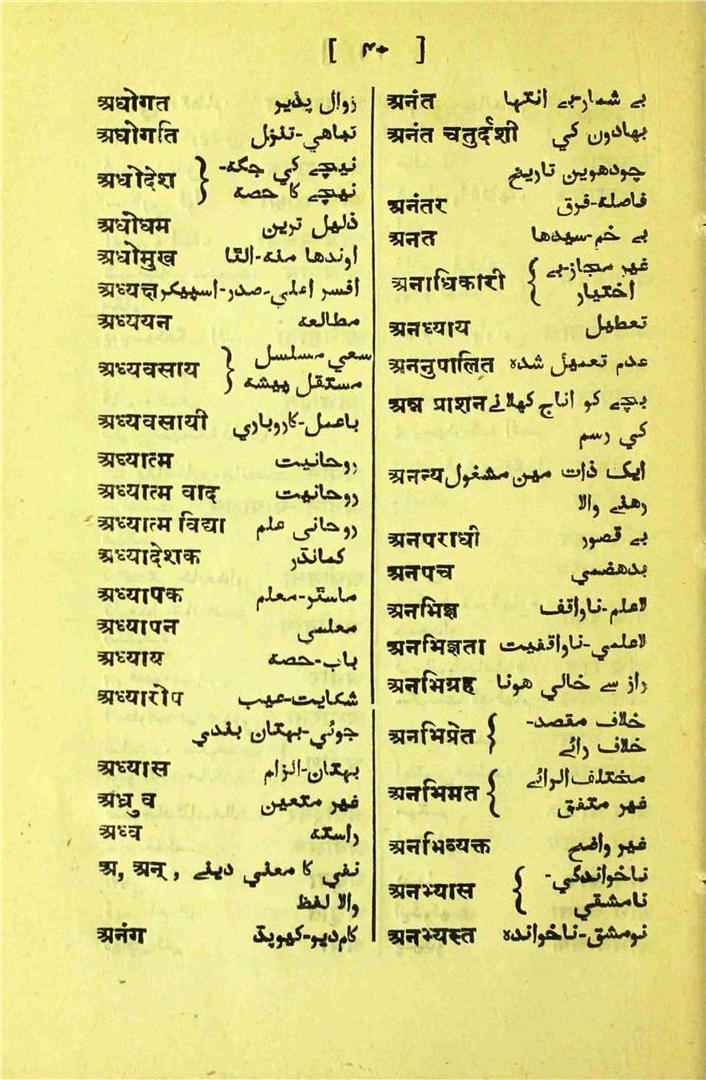 [ ۴۰ ]
अधोगत زوال پذیر
अधोगति تباهی-تنزل
अधोदेश { نیچے کی جگہ-
نیچے کا حصہ
अधोधम ذلیل ترین
अधोमुख اوندها منہ-الٹا
अध्यक्ष افسر اعلیٰ-صدر-اسپیکر
अध्ययन مطالعہ
अध्यवसाय { سعی مسلسل
مستقل پیشہ
अध्यवसायी باعمل-کاروباری
अध्यात्म روحانیت
अध्यात्म वाद روحانیت
अध्यात्म विद्या روحانی علم
अध्यादेशक کمانڈر
अध्यापक ماسٹر-معلم
अध्यापन معلمی
अध्याय باب-حصہ
अध्यारोप شکایت-عیب
جوئی-بہتان بندی
अध्यास بہتان-الزام
अध्रुव غیر متعین
अध्व راستہ
अ, अन् , نفی کا معنی دینے
والا لفظ
अनंग کام دیو-کیوپڈ
अनंत بے شمار-بے انتہا
अनंत चतुर्दशी بهادوں کی
چودهویں تاریخ
अनंतर فاصلہ-فرق
अनत بے خم-سیدها
अनाधिकारी { غیر مجاز-بے
اختیار
अनध्याय تعطیل
अननुपालित عدم تعمیل شدہ
अन्न प्राशन بچے کو اناج کهلانے
کی رسم
अनन्य ایک ذات میں مشغول
رهنے والا
अनपराधी بے قصور
अनपच بدهضمی
अनभिज्ञ لاعلم-ناواقف
अनभिज्ञता لاعلمی-ناواقفیت
अनभिग्रह راز سے خالی هونا
अनभिप्रेत { خلاف مقصد-
خلاف رائے
अनभिमत { مختلف الرائے
غیر متفق
अनभिव्यक्त غیر واضح
अनभ्यास { ناخواندگی-
نامشقی
अनभ्यस्त نومشق-ناخواندہ